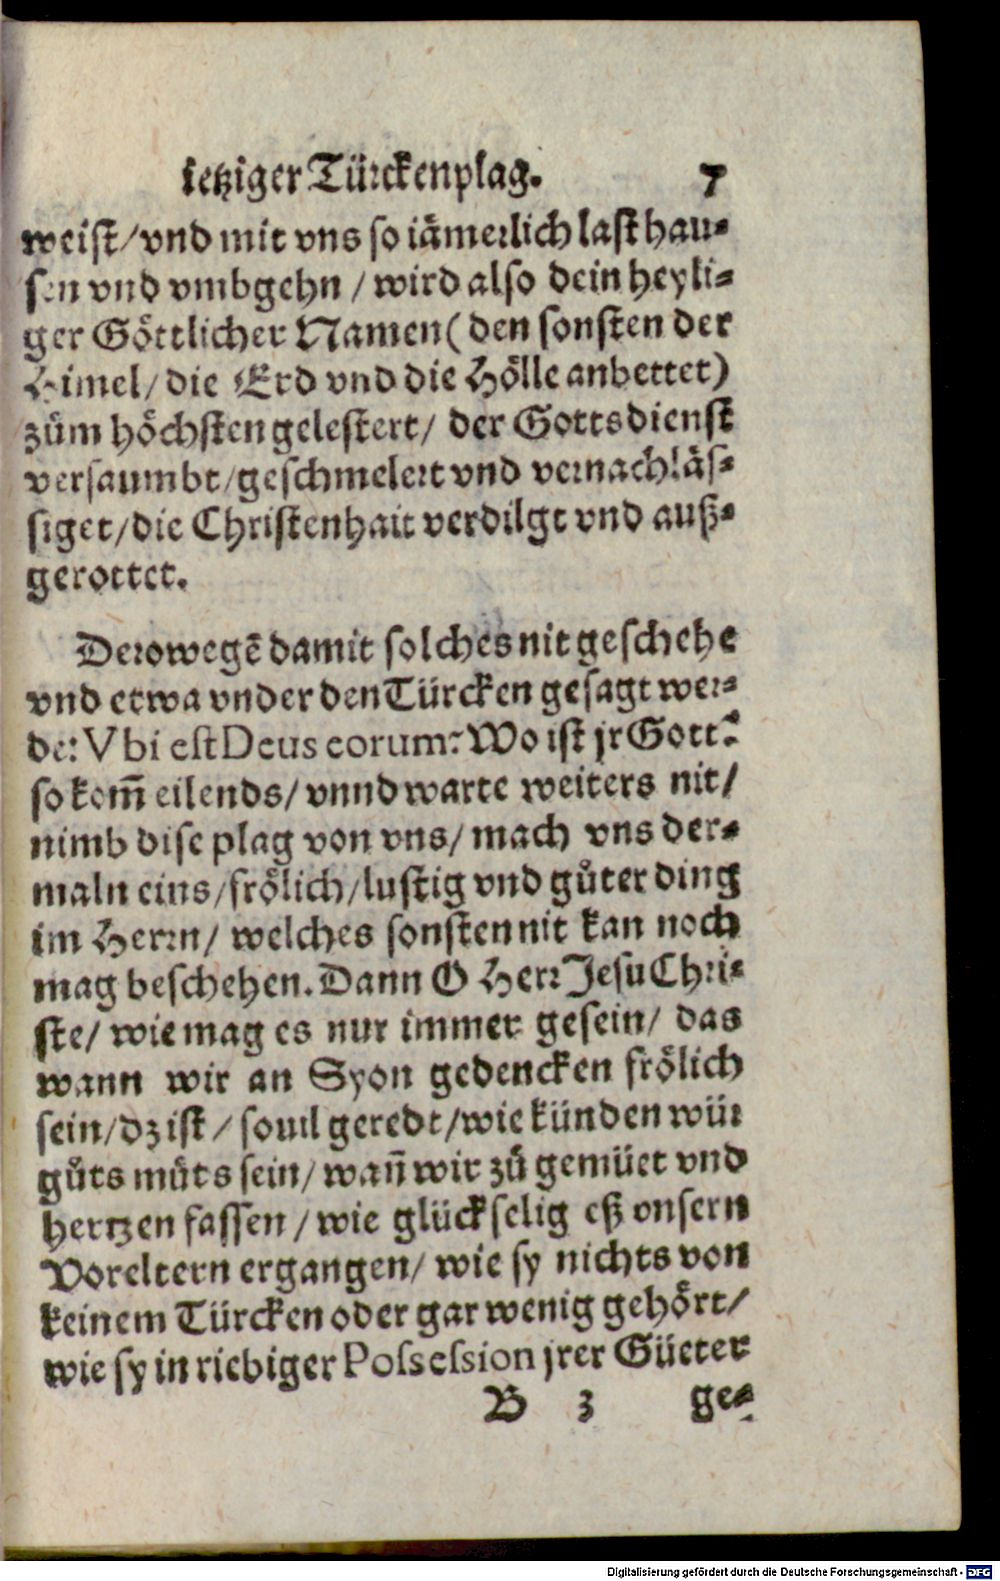 ietziger Türckenplag. 7
weist/vnd mit vns so iämerlich last hau-
sen vnd vmbgehn/wird also dein heyli-
ger Göttlicher Namen(den sonsten der
Himel/die Erd vnd die Hölle anbettet)
zům höchsten gelestert/der Gottsdienst
versaumbt/geschmelert vnd vernachläs-
siget/die Christenhait verdilgt vnd auß-
gerottet.
Derowegē damit solches nit geschehe
vnd etwa vnder den Türcken gesagt wer-
de: Vbi est Deus eorum? Wo ist jr Gott?
so kom̄ eilends/vnnd warte weiters nit/
nimb dise plag von vns/mach vns der-
maln eins/frölich/lustig vnd gůter ding
im Herrn/welches sonsten nit kan noch
mag beschehen. Dann O Herr Jesu Chri-
ste/wie mag es nur immer gesein/das
wann wir an Syon gedencken frölich
sein/dz ist/souil geredt/wie künden wür
gůts můts sein/wan̄ wir zů gemüet vnd
hertzen fassen/wie glückselig eß vnsern
Voreltern ergangen/wie sy nichts von
keinem Türcken oder gar wenig gehört/
wie sy in riebiger Possession jrer Güeter
B 3 ge-
Digitalisierung gefördert durch die Deutsche Forschungsgemeinschaft - DFG